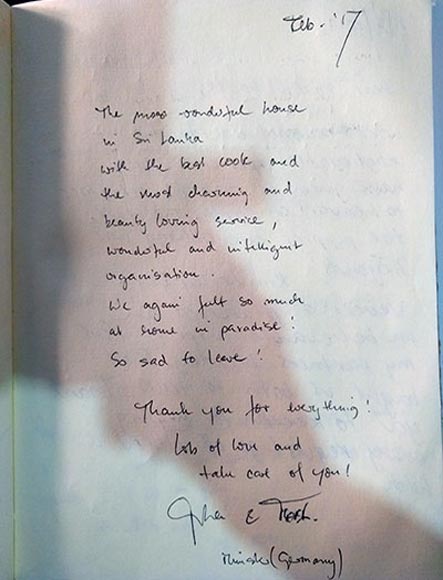 Feb. '17
The most wonderful house
in Sri Lanka
with the best cook and
the most charming and
beauty loving service,
wonderful and intelligent
organisation.
We again felt so much
at home in paradise!
So sad to leave!
Thank you for everything!
Lots of love and
take care of you!
&
(Germany)